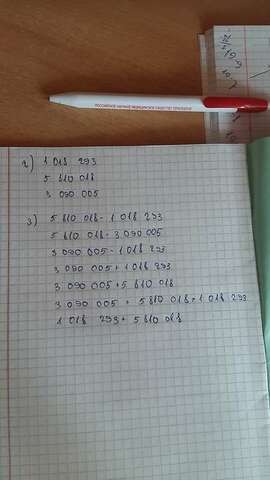 2) 1 018 293
5 810 018
3 090 005
3) 5 810 018 - 1 018 293
5 810 018 - 3 090 005
3 090 005 - 1 018 293
3 090 005 + 1 018 293
3 090 005 + 5 810 018
3 090 005 + 5 810 018 + 1 018 293
1 018 293 + 5 810 018